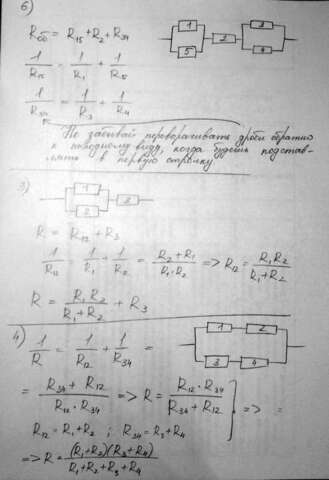 6)
1 2 3
5 4
Rоб = R15 + R2 + R34
1/R15 = 1/R1 + 1/R15
1/R34 = 1/R3 + 1/R4
Не забывай переворачивать дроби обратно
к исходному виду, когда будешь подстав-
лять в первую строчку
3)
1 2
2
R = R12 + R3
1/R12 = 1/R1 + 1/R2 = R2 + R1/R1·R2 => R12 = R1R2/R1+R2
R = R1R2/R1+R2 + R3
4) 1/R = 1/R12 + 1/R34 =
1 2
3 4
= R34 + R12/R12·R34 => R = R12·R34/R34+R12 } => =
R12 = R1 + R2 ; R34 = R3 + R4
=> R = (R1+R2)(R3+R4)/R1+R2+R3+R4